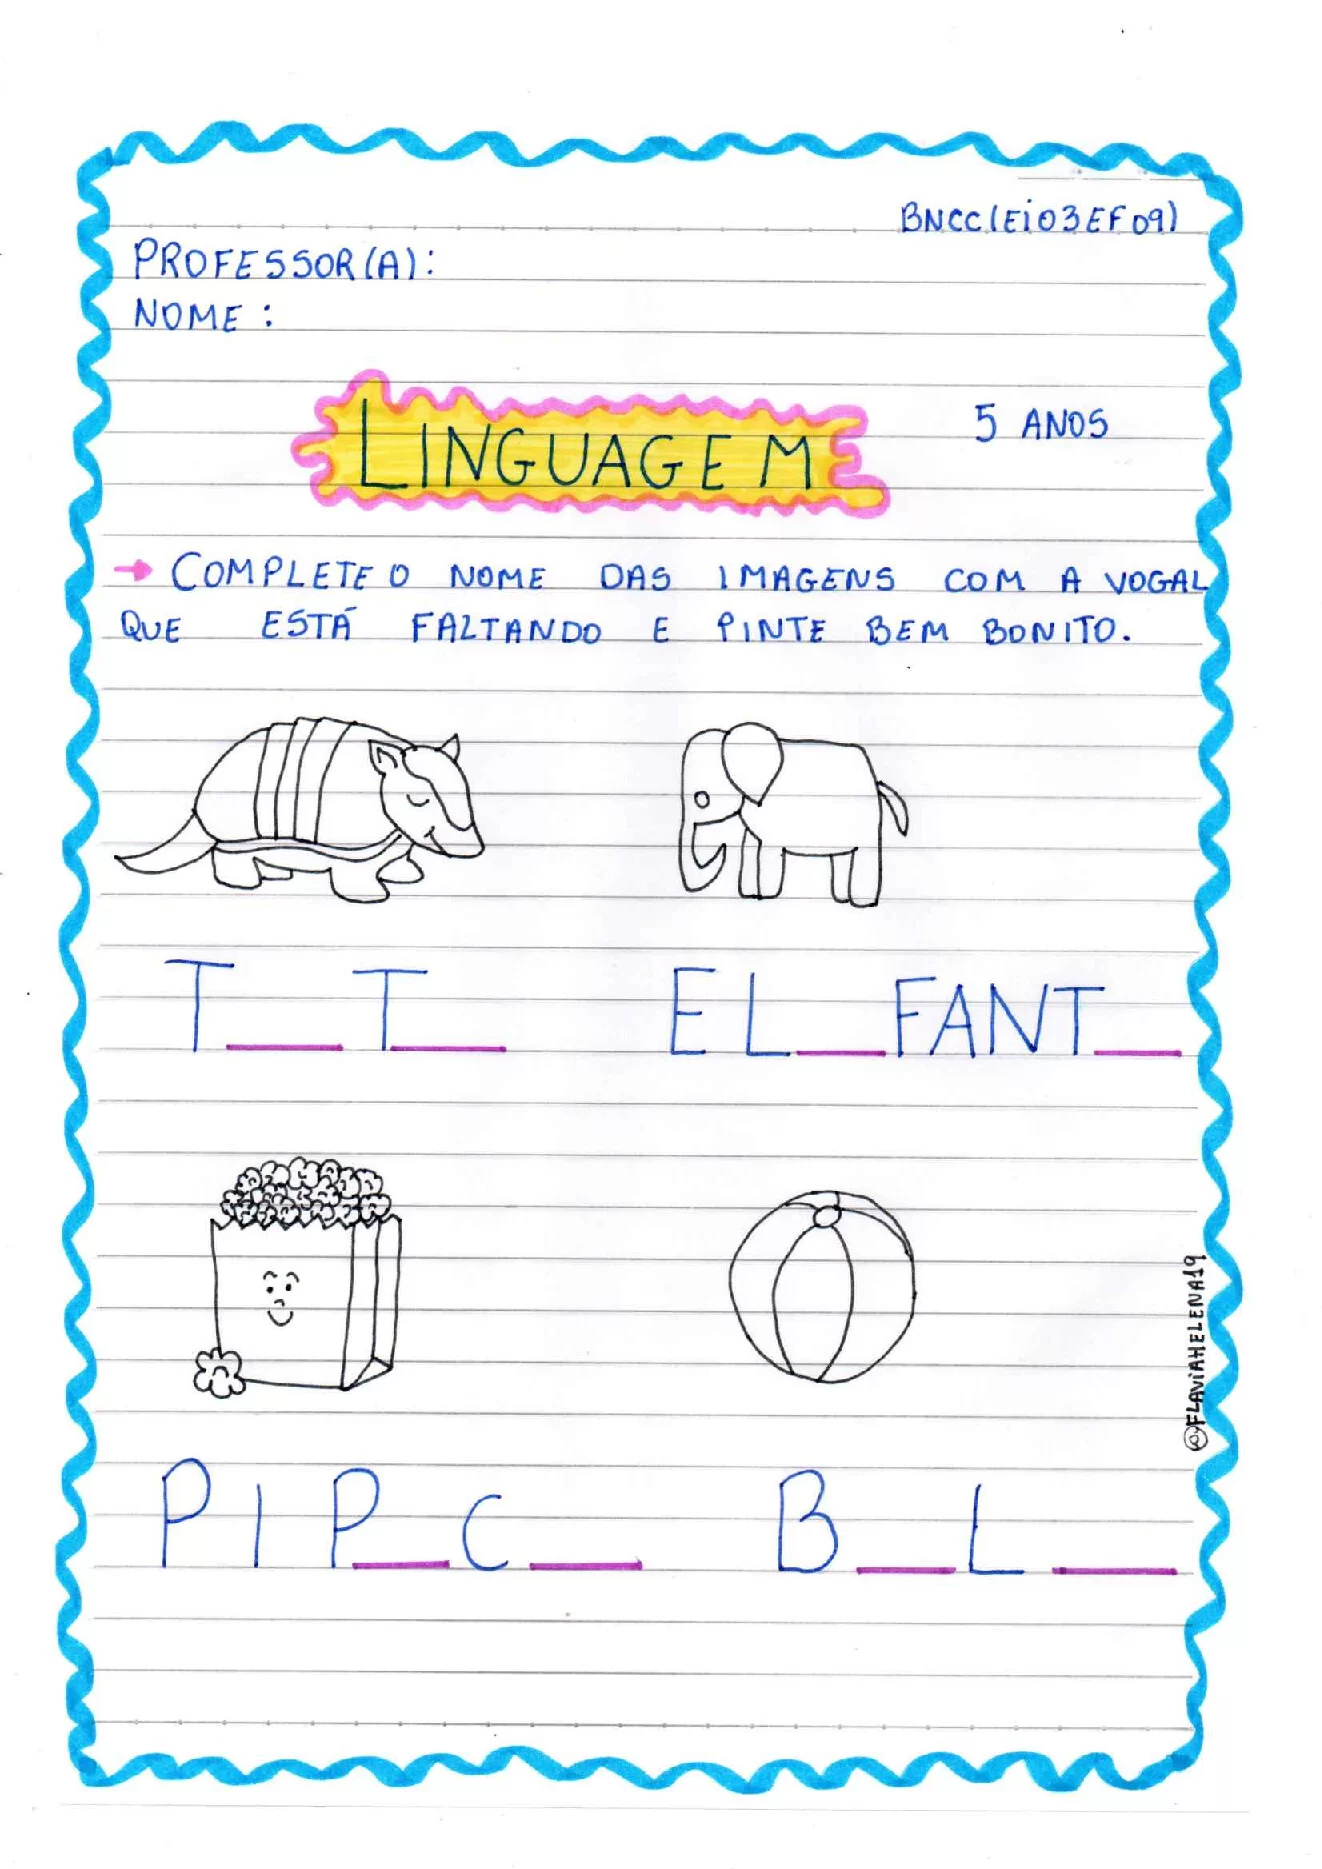 BNCC(Ei03EF09)
PROFESSOR(A):
NOME:
LINGUAGEM
5 ANOS
→ COMPLETE O NOME DAS IMAGENS COM A VOGAL
QUE ESTÁ FALTANDO E PINTE BEM BONITO.
T___T___
EL___FANT___
PIP___C___
B___L___
@FLAViAHELENA19